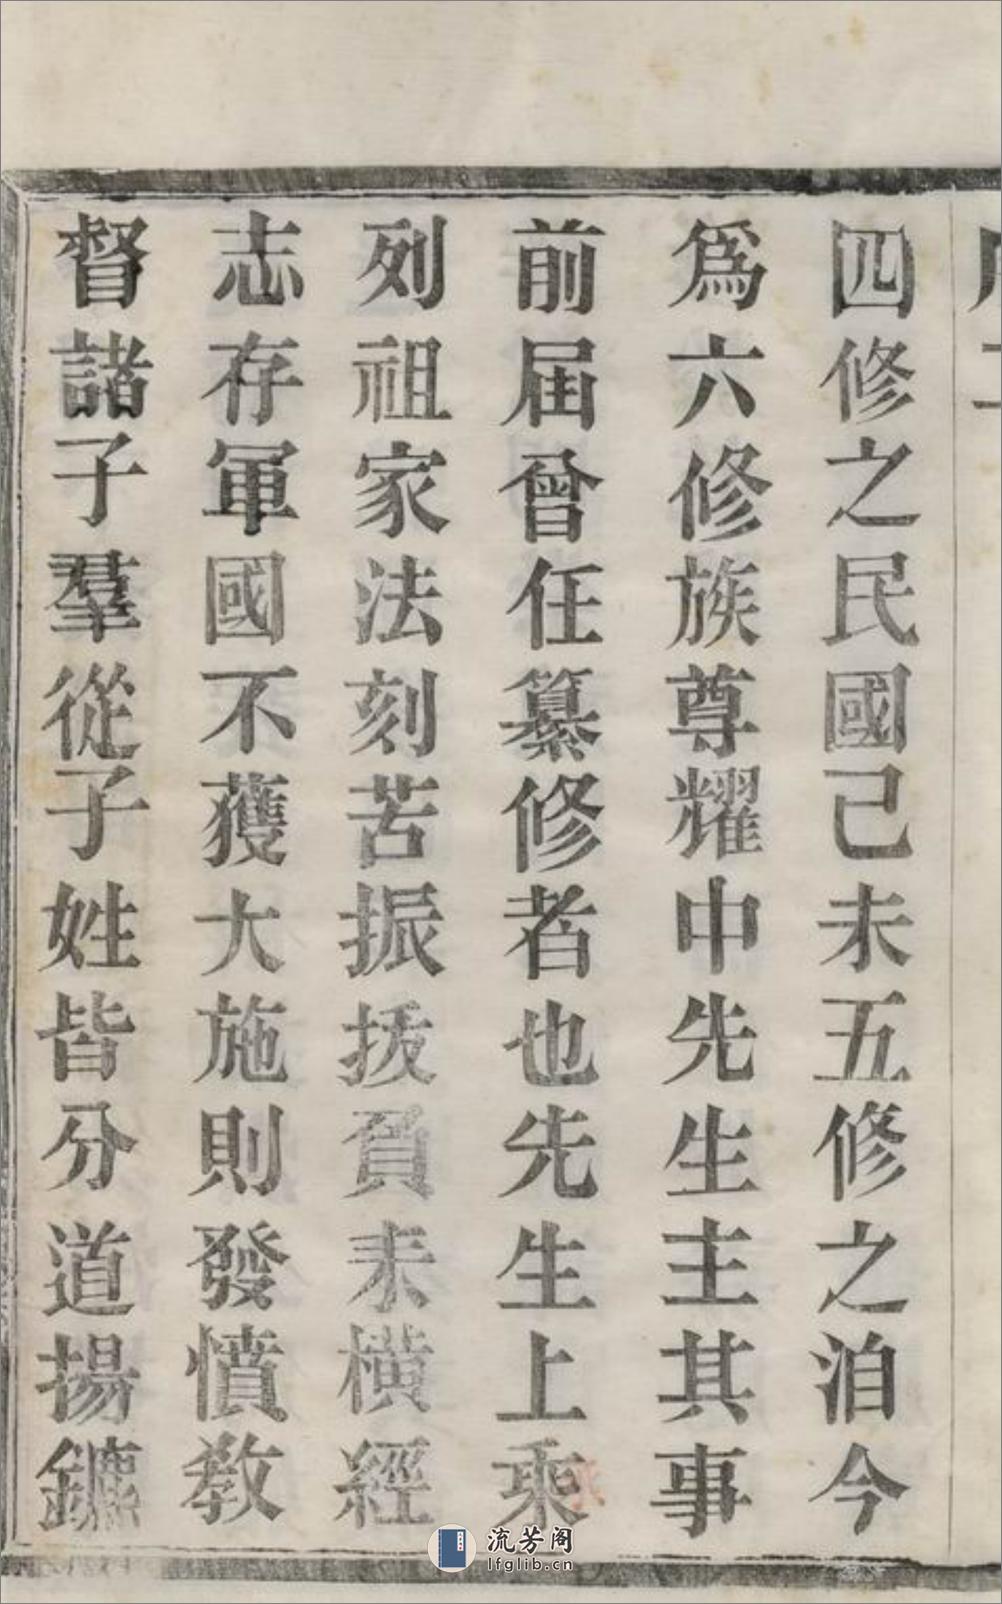 四修之民國己未五修之洎今
爲六修族尊耀中先生主其事
前届曾任纂修者也先生上乘
列祖家法刻苦振拔負耒橫經
志存軍國不獲大施則發憤教
督諸子羣從子姓皆分道揚鑣
流芳阁
lfglib.cn